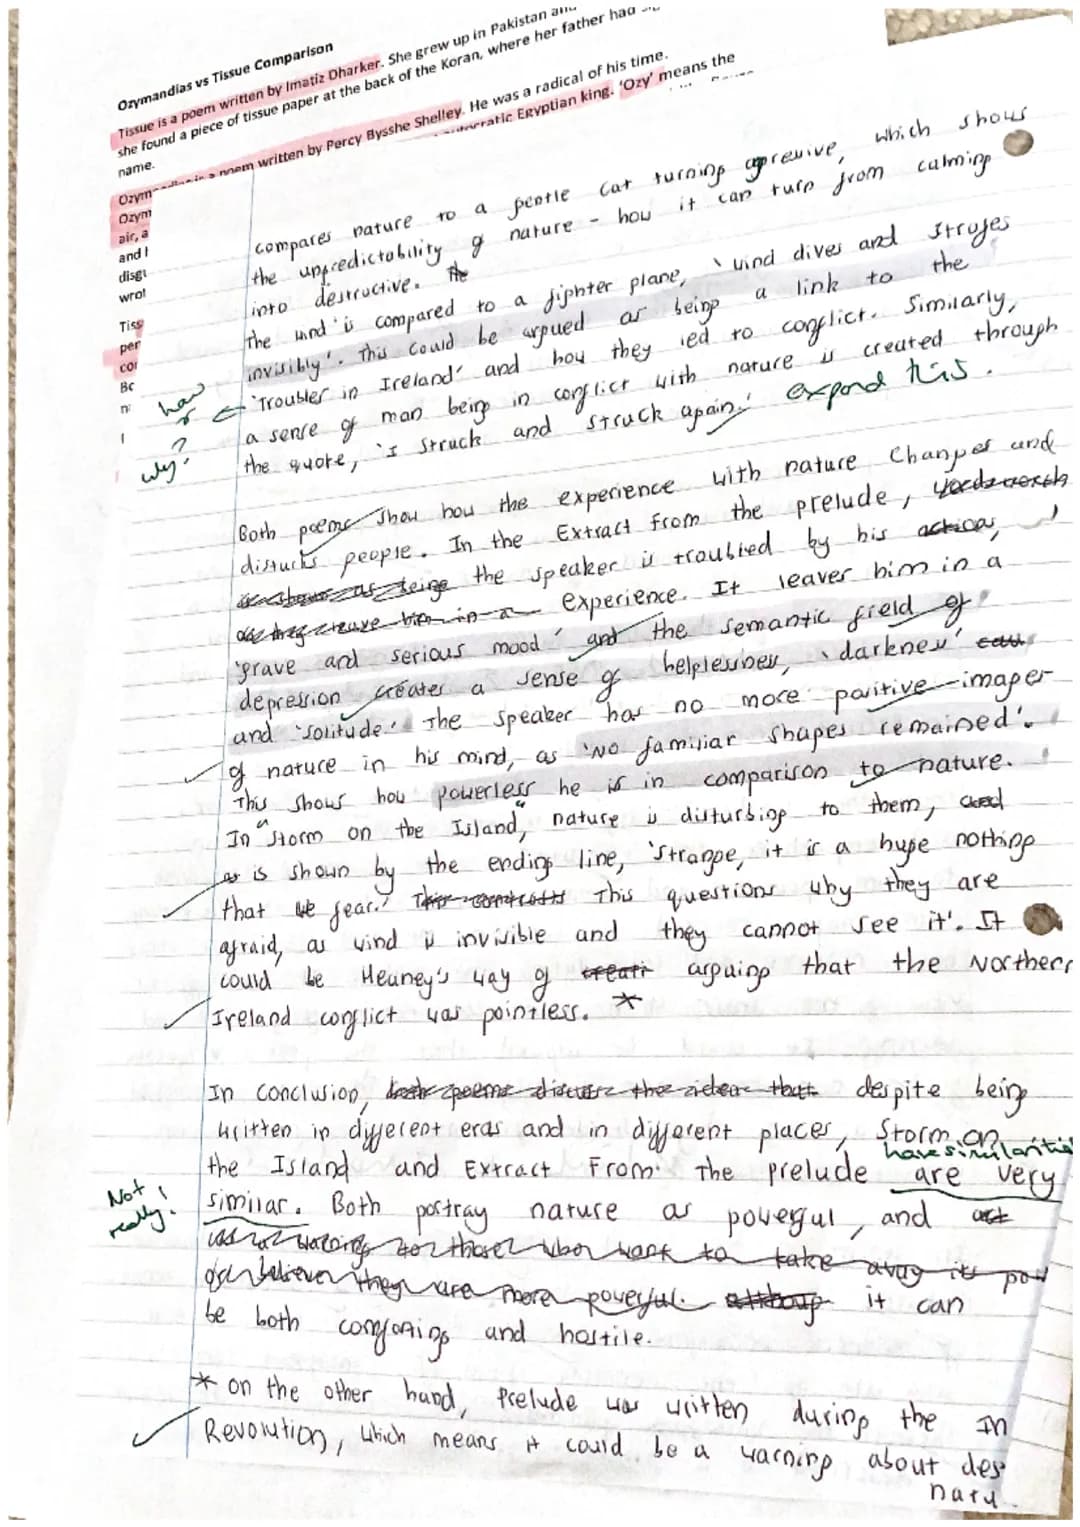 Ozymandias vs Tissue Comparison
Tissue is a poem written by Imatiz Dharker. She grew up in Pakistan and
she found a piece of tissue paper at the back of the Koran, where her father had
name.
Ozymandias is a poem written by Percy Bysshe Shelley. He was a radical of his time.
Ozym autocratic Egyptian king. 'Ozy' means the
air, a
and l
disgu
wrot
Tiss
per
cor
Bc
compares nature to a gentle cat turning agressive, which shows
the unpredictability of nature - how it can turn from calming
into destructive. The
The wind is compared to a fighter plane, 'wind dives and strafes
invisibly'. This could be argued as being a link to the
'Troubles in Ireland' and how they led to conflict. Similarly,
how
&
why?
a sense of man being in conflict with nature is created through
the quote, 'I struck and struck again.' expand this.
Both poems show how the experience with nature changes and
disturbs people. In the Extract from the prelude, wordsworth
is shown as being the speaker is troubled by his actions,
as they leave him in a experience. It leaves him in a
'grave and serious mood' and the semantic field of
depression creates a sense of helplessness, 'darkness'
and 'solitude.' The speaker has no more positive images
of nature in his mind, as 'No familiar shapes remained'.
This shows how powerless he is in comparison to nature.
In "Storm on the Island," nature is disturbing to them, and
as is shown by the ending line, 'Strange, it is a huge nothing
that we fear.' This contrasts This questions why they are
afraid, as wind is invisible and they cannot see it'. It
could be Heaney's way of creati arguing that the Northern
Ireland conflict was pointless. *
In conclusion, both poems discuss the idea that despite being
written in different eras and in different places, Storm on
have similarities
the Island and Extract From The prelude are very
Not really!
similar. Both portray nature as powerful, and act
as a warning for those who want to take away its pow
or believe they are more powerful. although it can
be both comforting and hostile.
* on the other hand, Prelude was written during the In
Revolution, which means it could be a warning about des
natu